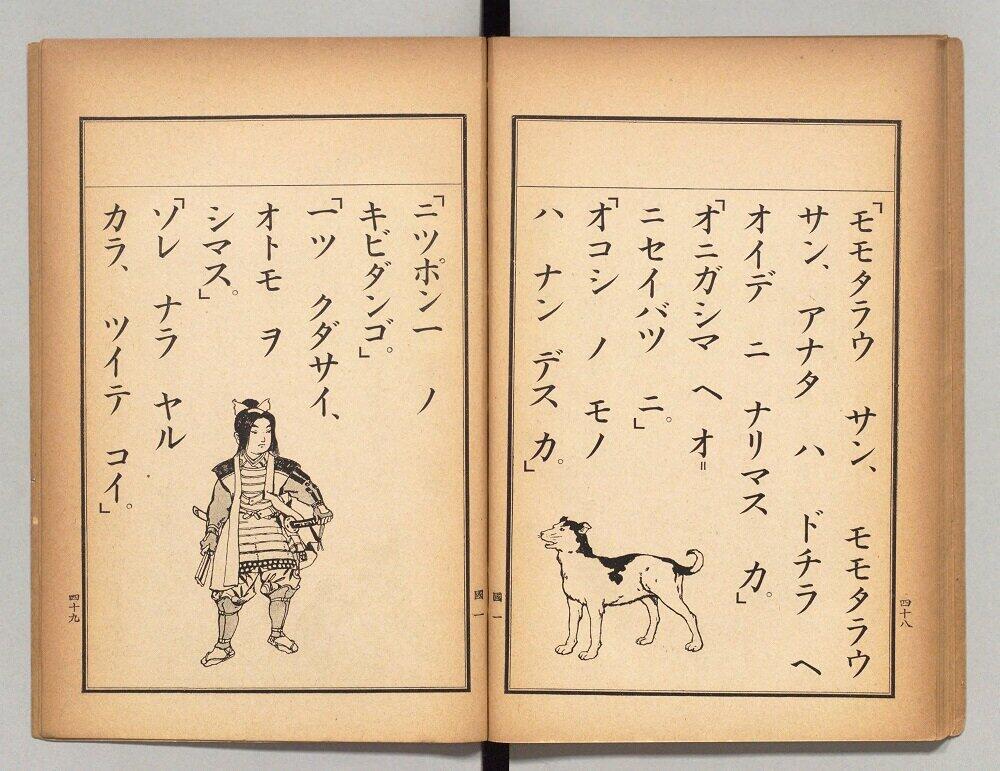 「モモタラウ　サン、　モモタラウ
サン、　アナタ　ハ　ドチラ　ヘ
オイデ　ニ　ナリマス　カ。」
「オニガシマ　ヘ　オ＝
ニセイバツ　ニ。」
「オコシ　ノ　モノ
ハ　ナン　デス　カ。」
四十八
國一
「ニツポン一　ノ
キビダンゴ。」
「一ツ　クダサイ、
オトモ　ヲ
シマス。」
「ソレ　ナラ　ヤル
カラ、　ツイテ　コイ。」
四十九
國一